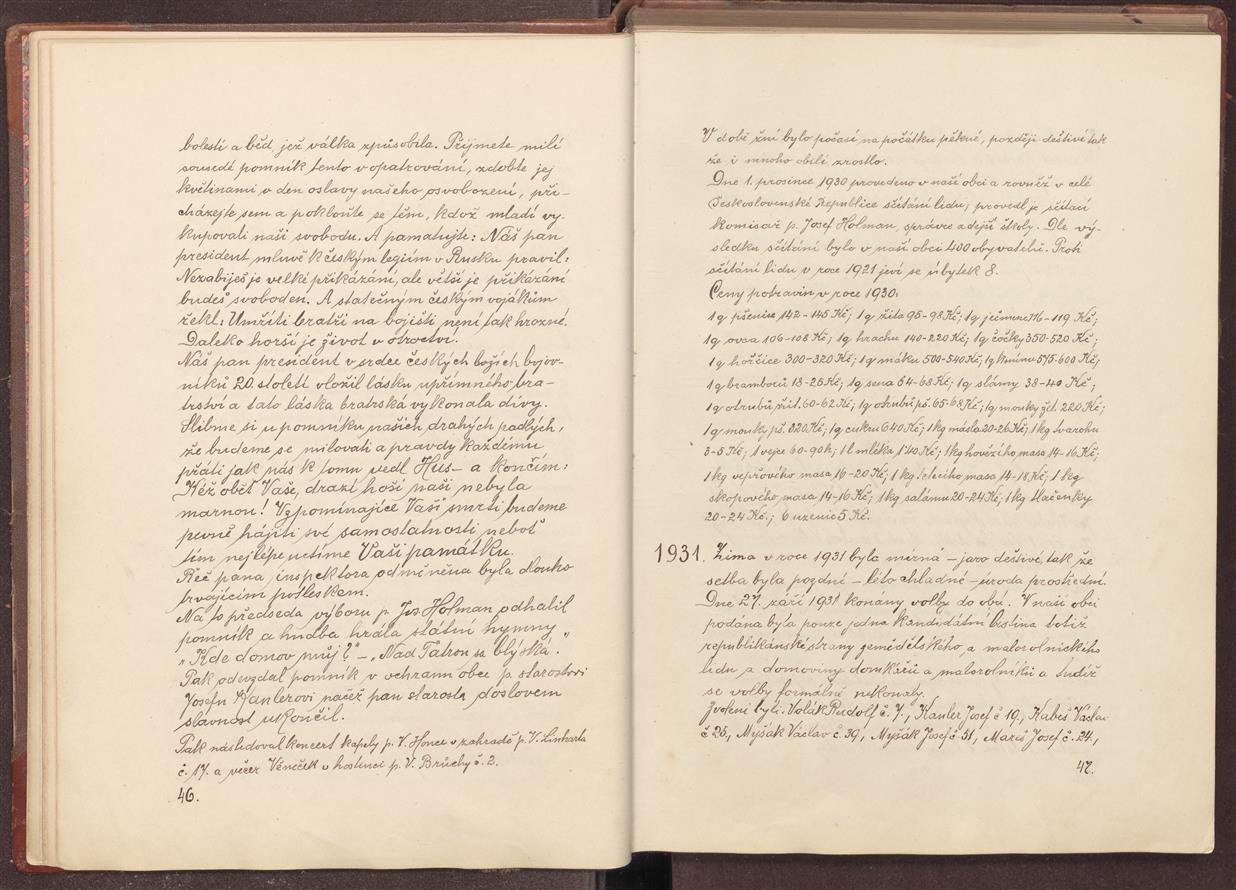 bolesti a běd jež válka způsobila. Přijmete milí
sousedé pomník tento v opatrování, zdobte jej
květinami v den oslavy našeho osvobození, při-
cházejte sem a pokloňte se těm, kdož mladí vy-
kupovali naši svobodu. A pamatujte: Náš pan
president mluvě k českým legiím v Rusku pravil:
Nezabiješ je velké přikázání, ale větší je přikázání
budeš svoboden. A statečným českým vojákům
řekl: Umříti bratři na bojišti není tak hrozné.
Daleko horší je život v otroctví!
Náš pan president v srdce českých božích bojov-
níků 20. století vložil lásku upřímného bra-
trství a tato láska bratrská vykonala divy.
Slibme si u pomníku našich drahých padlých,
že budeme se milovati a pravdy každému
přáti jak nás k tomu vedl Hus – a končím:
Kéž oběť Vaše, drazí hoši naši nebyla
marnou! Vzpomínajíce Vaší smrti budeme
pevně hájiti své samostatnosti neboť
tím nejlépe uctíme Vaši památku.
Řeč pana inspektora odměněna byla dlouho
trvajícím potleskem.
Na to předseda výboru p. Jos. Holman odhalil
pomník a hudba hrála státní hymny
„Kde domov můj?" – „Nad Tatrou sa blýská."
Pak odevzdal pomník v ochranu obce p. starostovi
Josefu Kanlerovi načež pan starosta doslovem
slavnost ukončil.
Pak následoval koncert kapely p. V. Honce v zahradě p. V. Linharta
č. 17. a večer Věneček v hostinci p. V. Brůchy č. 2.
46.
V době žní bylo počasí na počátku pěkné, později deštivé tak
že i mnoho obilí zrostlo.
Dne 1. prosince 1930 provedeno v naší obci a rovněž v celé
Československé Republice sčítání lidu, provedl je sčítací
komisař p. Josef Holman, správce zdejší školy. Dle vý-
sledku sčítání bylo v naší obci 400 obyvatelů. Proti
sčítání lidu v roce 1921 jeví se úbytek 8.
Ceny potravin v roce 1930:
1q pšenice 142-145 Kč; 1q žita 95-98 Kč; 1q ječmene 116-119 Kč;
1q ovsa 106-108 Kč; 1q hrachu 140-220 Kč; 1q čočky 350-520 Kč;
1q hořčice 300-320 Kč; 1q máku 500-540 Kč; 1q kmínu 575-600 Kč;
1q bramborů 18-25 Kč; 1q sena 54-68 Kč; 1q slámy 38-40 Kč;
1q otrubů žit. 60-62 Kč; 1q otrubů pš. 65-68 Kč; 1q mouky žit. 220 Kč;
1q mouky pš. 320 Kč; 1q cukru 640 Kč; 1kg másla 20-26 Kč; 1kg tvarohu
3-5 Kč; 1 vejce 60-90 h; 1l mléka 1·40 Kč; 1kg hovězího masa 14-16 Kč;
1kg vepřového masa 16-20 Kč; 1kg telecího masa 14-18 Kč; 1kg
skopového masa 14-16 Kč; 1kg salámu 20-24 Kč; 1kg tlačenky
20-24 Kč.; 6 uzenic 5 Kč.
1931. Zima v roce 1931 byla mírná – jaro deštivé, tak že
setba byla pozdní – léto chladné – úroda prostřední.
Dne 27. září 1931 konány volby do obcí. V naší obci
podána byla pouze jedna kandidátní listina totiž
republikánské strany zemědělského a malorolnického
lidu a domoviny domkářů a malorolníků a tudíž
se volby formálně nekonaly.
Zvoleni byli: Volák Rudolf č. 7., Kanler Josef č 19., Kabeš Václav
č 25., Myšák Václav č 39., Myšák Josef č 51., Mareš Josef č. 24.,
47.